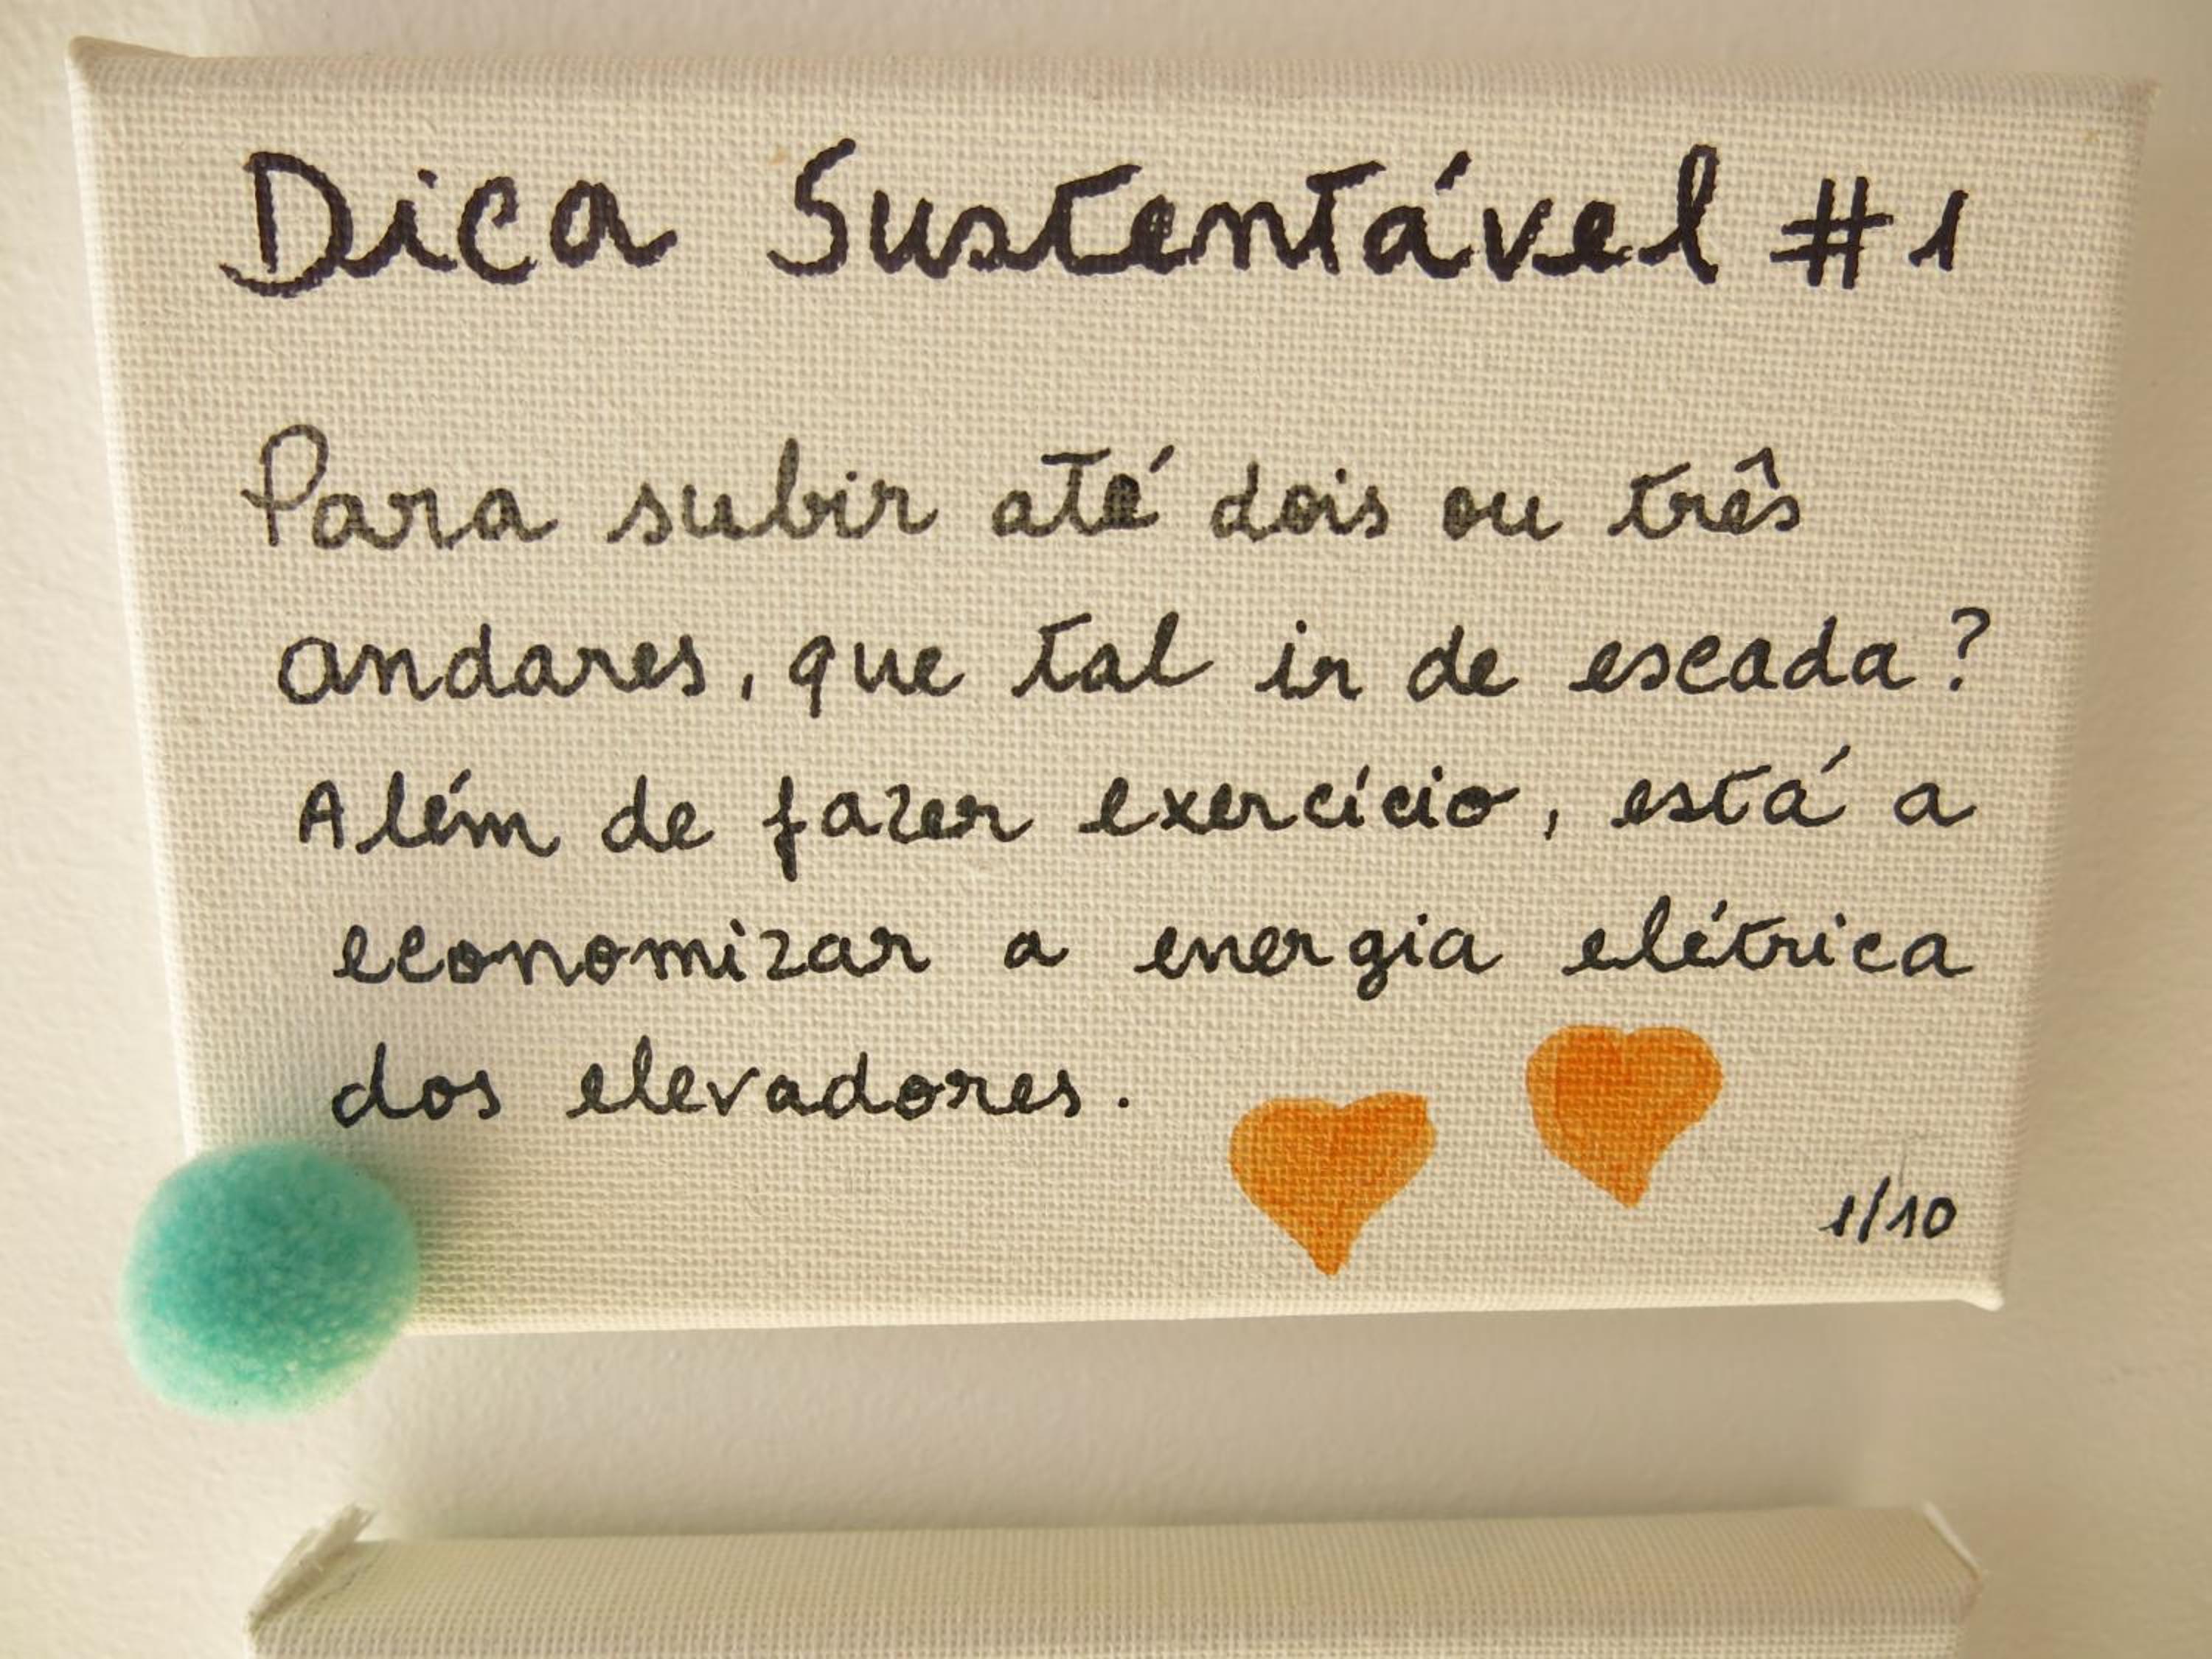 Dica Sustentável #1
Para subir até dois ou três
andares, que tal ir de escada?
Além de fazer exercício, está a
economizar a energia elétrica
dos elevadores.
1/10